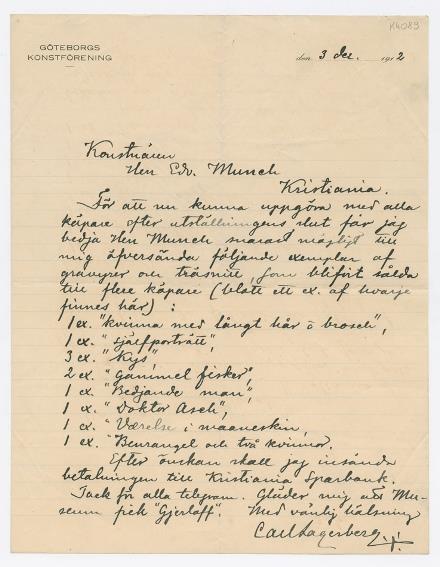 K4083
GÖTEBORGS
KONSTFÖRENING
den 3 dec. 1912
Konstnären
Herr Edv. Munch
Kristiania.
För att nu kunna uppgöra med alla
köpare efter utställningens slut får jag
bedja Herr Munch snarast möjligt till
mig öfversända följande exemplar af
gravyrer och träsnitt, som blifvit sålda
till flere köpare (blott ett ex. af hvarje
finnes här) :
1 ex. "Kvinna med långt hår o brosch",
1 ex. "Sjelfporträtt",
3 ex. "Kys",
2 ex. "Gammel fisker",
1 ex. "Bedjande man",
1 ex. "Doktor Asch",
1 ex. "Værelse i maaneskin,
1 ex. "Benrangel och två kvinnor.
Efter önskan skall jag insända
betalningen till Kristiania Sparbank.
Tack för alla telegram. Gläder mig att Mu-
seum fick "Gjerløff". Med vänlig hälsning
Carl Lagerberg